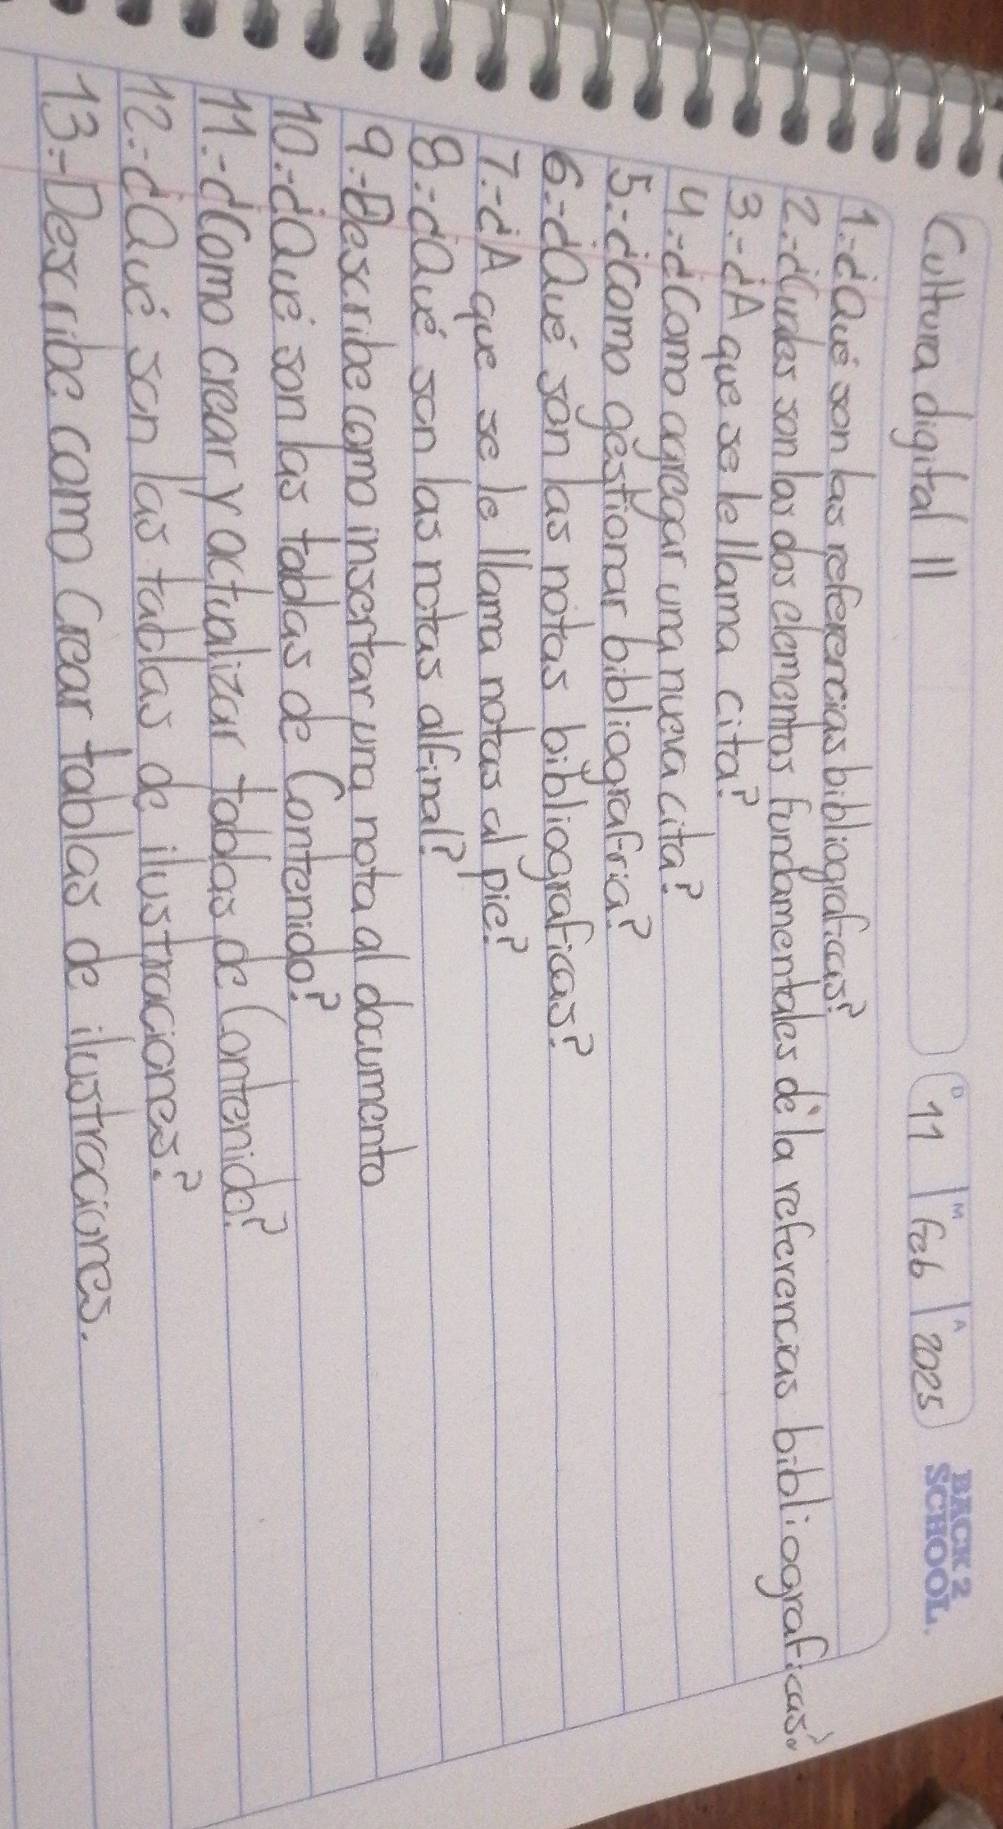 Cultura digital II
D 11 M feb A 2025
BACK 2 SCHOOL.
1.-¿Qué son las referencias bibliograficas?
2.-¿Cuales son las dos elementos fundamentales de la referencias bibliograficas?
3.-¿A que se le llama cita?
4.-¿Como agregar una nueva cita?
5.-¿Como gestionar bibliografria?
6.-¿Qué son las notas bibliograficas?
7.-¿A que se le llama notas al pie?
8.-¿Qué son las notas alfinal?
9.-Describe como insertar una nota al documento
10.-¿Qué son las tablas de Contenido?
11.-¿Como crear y actualizar tablas de Contenido?
12.-¿Qué son las tablas de ilustraciones?
13.-Describe como Crear tablas de ilustraciones.